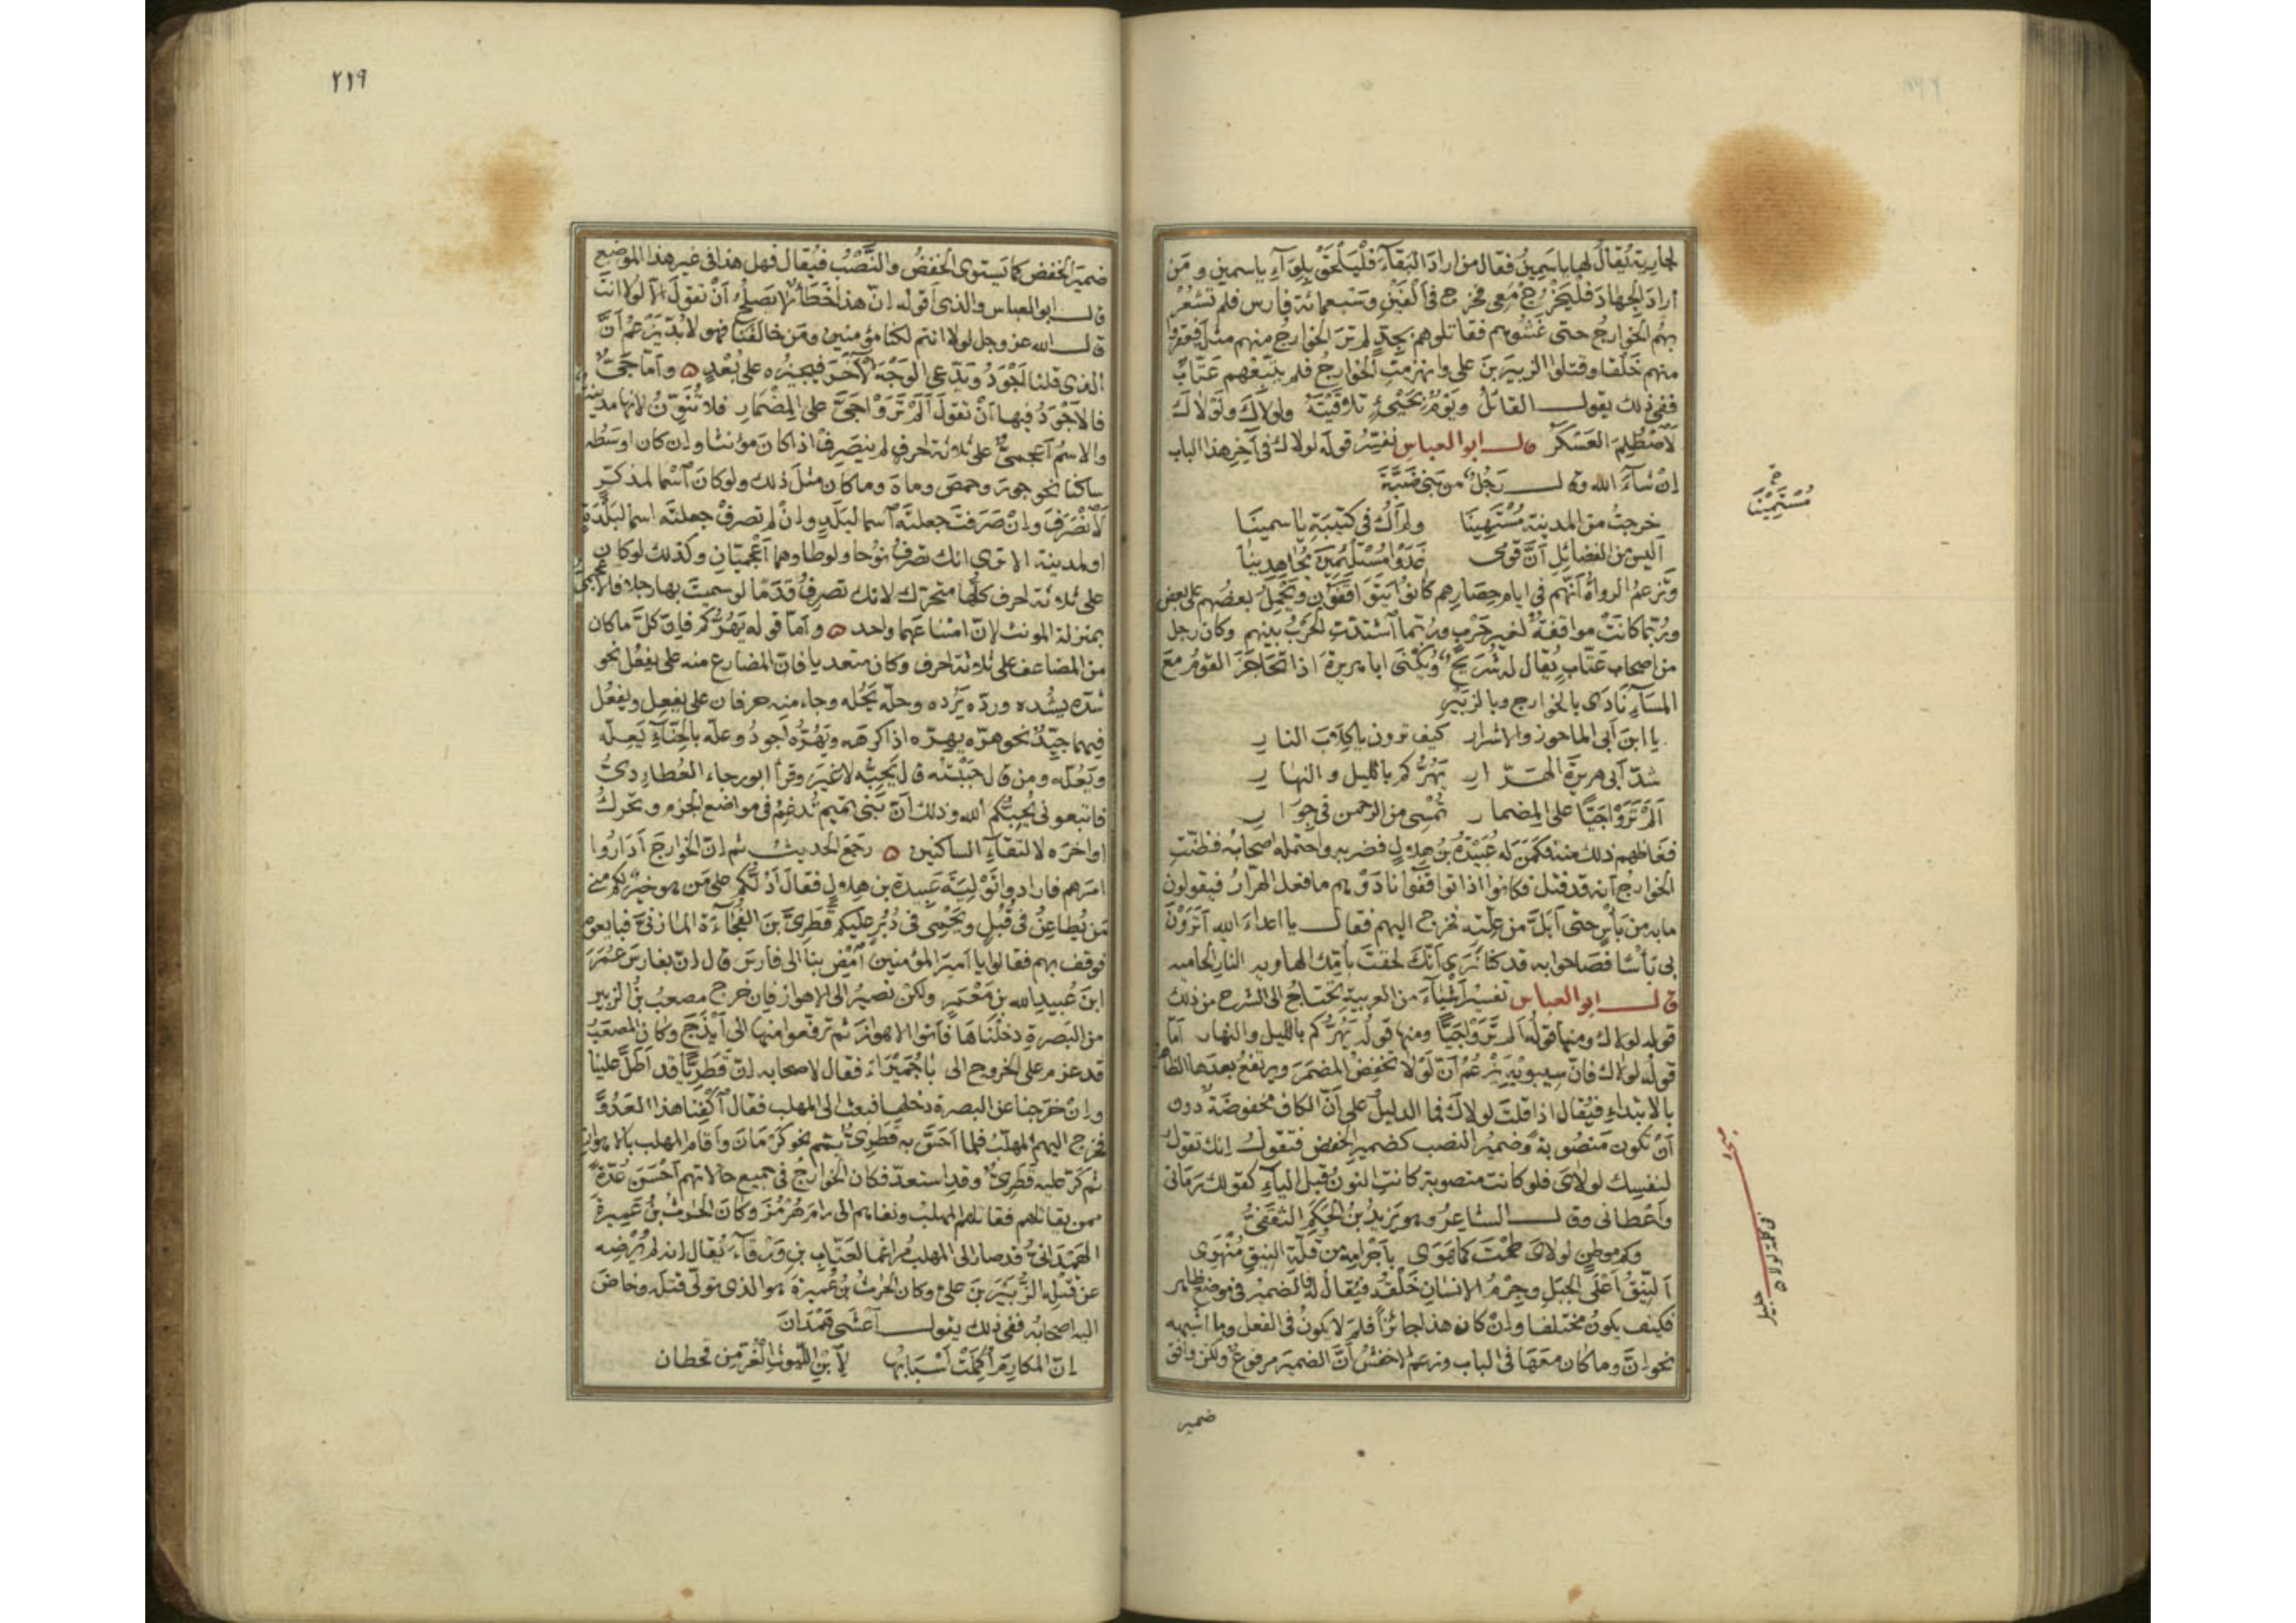 لجارية يُقالُ لها ياسَمِينُ فقال من ارادَ البَقآءَ فَلْيَلْحَقْ بِلِوَآءِ ياسمين ومَن
ارادَ الجِهادَ فلْيَخْرُجْ مَعِى فخرج فى ألفَيْنِ وسَبعمائة فارس فلم تشعُرْ
بهُم الخوارجُ حتى غَشُوهم فقاتلوهم بجِدٍّ لم تَرَ الخوارجُ منهم مثلَه فعقروا
منهم خَلقا وقتلوا الزبيرَ بنَ على وانهزمتِ الخوارجُ فلم يتبعْهم عَتّابٌ
ففى ذلك يقول القائلُ ويَوْمٌ بِجَىٍّ تلافَيْتَهُ ولولاكَ ولَوْلاكَ
لاصْطُلِمَ العَسْكَرُ قال ابو العباس نفسّر قوله لولاك فى آخِرِ هذا الباب
ان شآءَ الله وقال رَجُلٌ من بَنِى ضَبَّةَ
خرجتُ من المدينة مُسْتَمِينَا ولم أكُ فى كتيبَةِ ياسمينَا
أليسَ من الفضائلِ أنَّ قومى غَدَوْا مُسْتَلْئِمِينَ مُجاهِدِينَا
وتَزعمُ الرواةُ أنّهم فى ايام حِصَارِهم كانوا يَتَوَاقَفُونَ ويَحْمِلُ بعضُهم على بعض
ورُبّما كانَتْ مواقفةً لغير حَرْبٍ ورُبّما آشتدّت الحَرْبُ بينهم وكان رجل
من اصحاب عَتّابٍ يُقال له شُرَيْحٌ ويُكْنَى ابا هريرةَ اذا تَحَاجَزَ القومُ مَعَ
المسَآءِ نَادَى بالخوارج وبالزبَيْرِ
يا ابنَ أبى الماحوز والاشرار كيف ترون يا كِلابَ النار
شدّ أبى هريرةَ الهَرّار يَهُرُّكم بالليل والنهار
ألمْ تَرَوْا جَيًّا على المِضمار تُمْسِى من الرحمن فى جِوَار
فغاظهم ذلك منه فكَمَنَ له عُبَيْدَةُ بنُ هِلالٍ فضربه واحتمله اصحابُه فظنّتِ
الخوارجُ أنه قد قتل فكانوا اذا تواقفوا نادَوْهم ما فعل الهَرّارُ فيقولون
ما به من بأسٍ حتى أبَلَّ من عِلّته فخرج اليهم فقال يا اعداءَ الله أتَرَوْنَ
بى بَأسًا فصَاحوا به قد كنّا نُرَى أنّكَ لَحِقتَ بأمّك الهاويه النار الحاميه
قال ابو العباس تفسيرُ أشْيآءَ من العربية تحتاجُ الى الشرح من ذلك
قوله لولاك ومنها قولُه ألم تَرَوْا جَيًّا ومنها قولُه يَهُرُّكم بالليل والنهار أمّا
قولُه لولاكَ فانّ سيبويْهِ يَزْعُمُ أنّ لَوْلا تَخفِضُ المضمَرَ ويرتفعُ بعدَها الظاهر
بالابتداءِ فيُقال اذا قلتَ لولاكَ فما الدليلُ على أنّ الكاف مخفوضَةٌ دون
أنْ تكون مَنصُوبةً وضميرُ النصب كضميرِ الخفض فتقول إنك تقولُ
لنفسِك لولاىَ فلو كانت منصوبة كانتِ النون قبل الياءِ كقولك رَمَانى
وأعْطانى وقال الشاعرُ وهو يَزيدُ بنُ الحَكَمِ الثقَفىُّ
وكم موطنٍ لولاىَ طِحْتَ كما هَوَى بأجْرامِه من قُلّة النِيقِ مُنْهَوِى
النِّيقُ أعْلَى الجبَلِ وجِرْمُ الانسان خَلْقُه فيُقال له فالضميرُ فى موضع ظاهر
فكيف يكونُ مختلفا وإنْ كان هذا جائزًا فلِمَ لا يكونُ فى الفعل وما اشبهه
نحو انّ وما كان معَهَا فى الباب وزعم الاخفشُ أنَّ الضميرَ مرفوعٌ ولكن وافق
ضمير
مُسْتَمِيْنَا
فى كلمة لولاه
٢١٩
ضميرَ الخفض كما يَستوى الخفضُ والنَّصْبُ فيُقال فهل هذا فى غير هذا الموضع
قال ابو العباس والذى أقوله إنّ هذا خَطَأٌ لا يَصلحُ أنْ تقولَ الا لولا انتَ
قال الله عز وجل لولا انتم لكنا مؤمنين ومَن خالفَنا فهو لا بُدّ يَزعُمُ أنَّ
الذى قلنا أجْوَدُ ويَدّعى الوَجْهَ الآخَرَ فيجيزُه على بُعْدٍ وأمّا جَىٌّ
فالأجْوَدُ فيها أنْ تقولَ ألَمْ تَرَوْا جَىَّ على المِضْمارِ فلا تُنَوِّنُ لانها مدينة
والاسمُ أعجمىٌّ على ثلاثة احرفٍ لم يَنصَرِفْ اذا كان مؤنثا وإن كان اوسَطُه
ساكنا نحو جورَ وحمصَ وماهَ وما كان مثلَ ذلك ولو كان آسْما لمذكّرٍ
لانْصَرَفَ وإنْ صَرَفْتَ جعلتَه آسما لبَلَدٍ وإنْ لم تصرفْ جعلتَه اسما لبَلْدَةٍ
او لمدينة الا ترى انك تصرفُ نوُحا ولوطا وهما أعْجميّان وكذلك لو كان
على ثلاثة احرف كلّها متحرّك لانك تصرِفُ قَدَمًا لو سميتَ بها رجلا فالاعجمىّ
بمنزلة المونث لانّ امتناعَهما واحد وأمّا قوله يَهُرُّكُم فإنّ كلّ ما كان
من المضاعف على ثلاثة احرف وكان متعديا فانّ المضارع منه على يَفْعُل نحو
شدّه يشُدّه وردّه يَرُدّه وحلّه يَحُلّه وجاء منه حرفان على يفعِل ويفعُل
فيهما جيّدٌ نحو هرّه يهِرّه اذا كرهَه ويَهُرّه أجودُ وعلّه بالحِنّآءِ يَعِلّه
ويَعُلّه ومن قال حَبَبْتُه قال يَحِبّه لا غيرَ وقرأ ابو رجاء العُطاردىُّ
فاتبعونى يَحِبَّكم الله وذلك أنّ بَنِى تميم تُدغِمُ فى مواضع الجزم وتحرّكُ
اواخرَه لالتقاءِ الساكنين رجَعَ الحديث ثم إنّ الخوارج أدَاروا
امرَهم فارادوا تَوْلِيَةَ عَبيدة بن هلالٍ فقال أدُلُّكم على مَن هو خيرٌ لكم منّى
مَن يُطاعِنُ فى قُبُلٍ ويَحْمِى فى دُبُرٍ عليكم قَطَرِىَّ بنَ الفُجَآءَةِ المازنىَّ فبايعوه
فوقف بهم فقالوا يا أميرَ المؤمنين آمْضِ بنا الى فارسَ قال إنّ بفارسَ عُمَرَ
ابنَ عُبيدِ الله بن مَعْمَرٍ ولكنْ نصيرُ الى الاهواز فإن خرج مصعبُ بنُ الزبير
من البصرةِ دخلْنَاها فأتوا الاهوازَ ثم ترفّعوا منها الى أيْذَجَ وكان المصعَبُ
قد عزم على الخروج الى بَاجُمَيْرَاءَ فقال لاصحابه إنّ قَطَرِيًّا قد أطَلَّ علينا
وإنْ خرجنا عن البصرة دخلها فبعث الى المهلب فقال آكْفِنا هذا العَدُوَّ
فخرج اليهم المهلّبُ فلما أحَسَّ به قَطَرِىٌّ يَمّم نحو كِرْمَانَ وأقام المهلب بالاهواز
ثم كرّ عليه قَطَرِىٌّ وقد استعدّ فكان الخوارجُ فى جميع حالاتهم أحْسَنَ عُدّةً
ممن يقاتلهم فقاتلهم المهلبُ ونفاهم الى رامَ هُرْمُزَ وكان الحارثُ بنُ عَميرةَ
الهَمْدانىُّ قد صار الى المهلب مُراغما لعَتّابِ بنِ وَرْقآءَ يُقال إنه لم يُرْضِه
عن قَتْلِه الزُّبَيْرَ بنَ علىّ وكان الحرثُ بنُ عَميرةَ هو الذى تولّى قتلَه وخاضَ
اليه اصحابُه ففى ذلك يقول أعْشَى هَمْدَانَ
إنّ المكارِمَ أُكْمِلَتْ أسْبَابُها لابْنِ الليُوثِ الغُرّ من قحطان